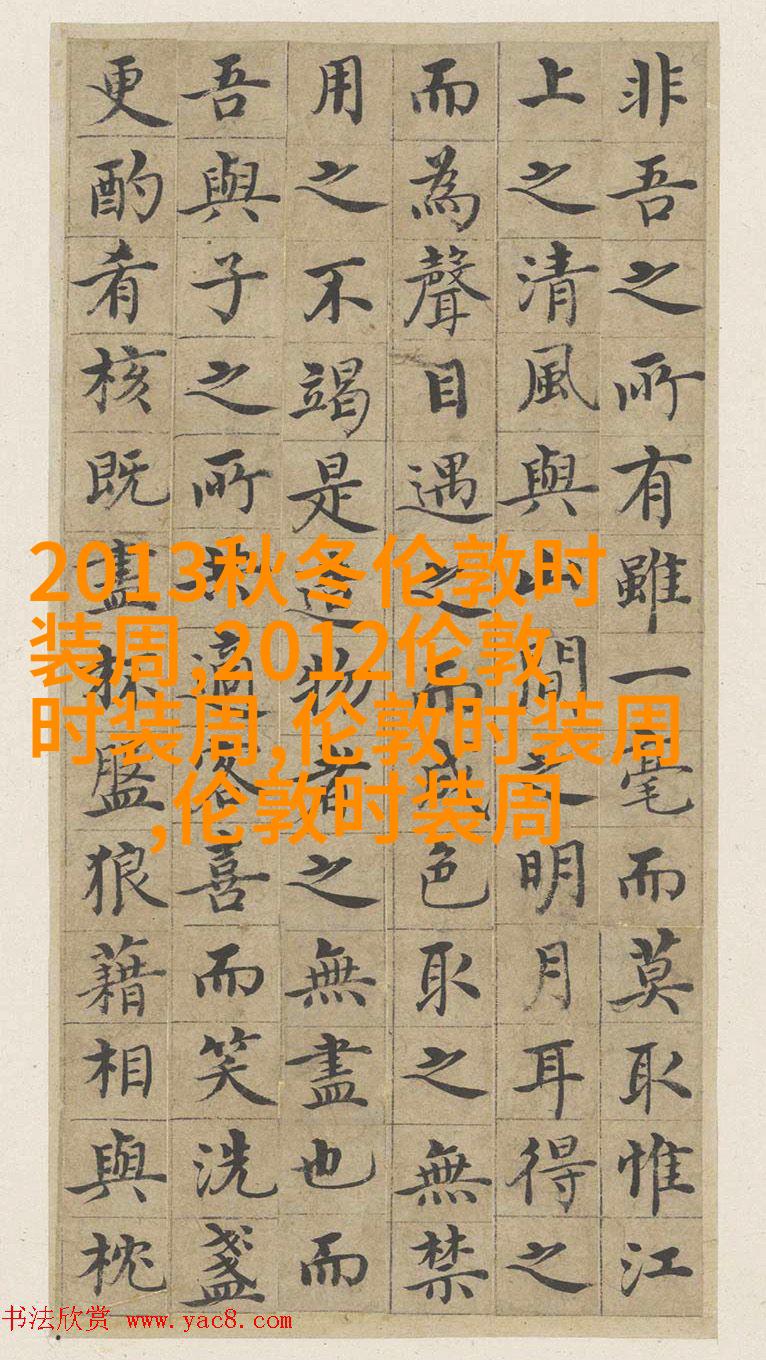 非吾之所有雖一毫而莫取惟江
上之清風與山間之明月耳得之
而為聲目遇之而成色取之無禁
用之不竭是造物者之無盡也而
吾與子之所適客喜而笑洗盞
更酌肴核既盡杯盤狼藉相與枕
2013秋冬伦敦时
装周,2012伦敦
时装周,伦敦时装周
,伦敦时装周
书法欣赏 www.yac8.com